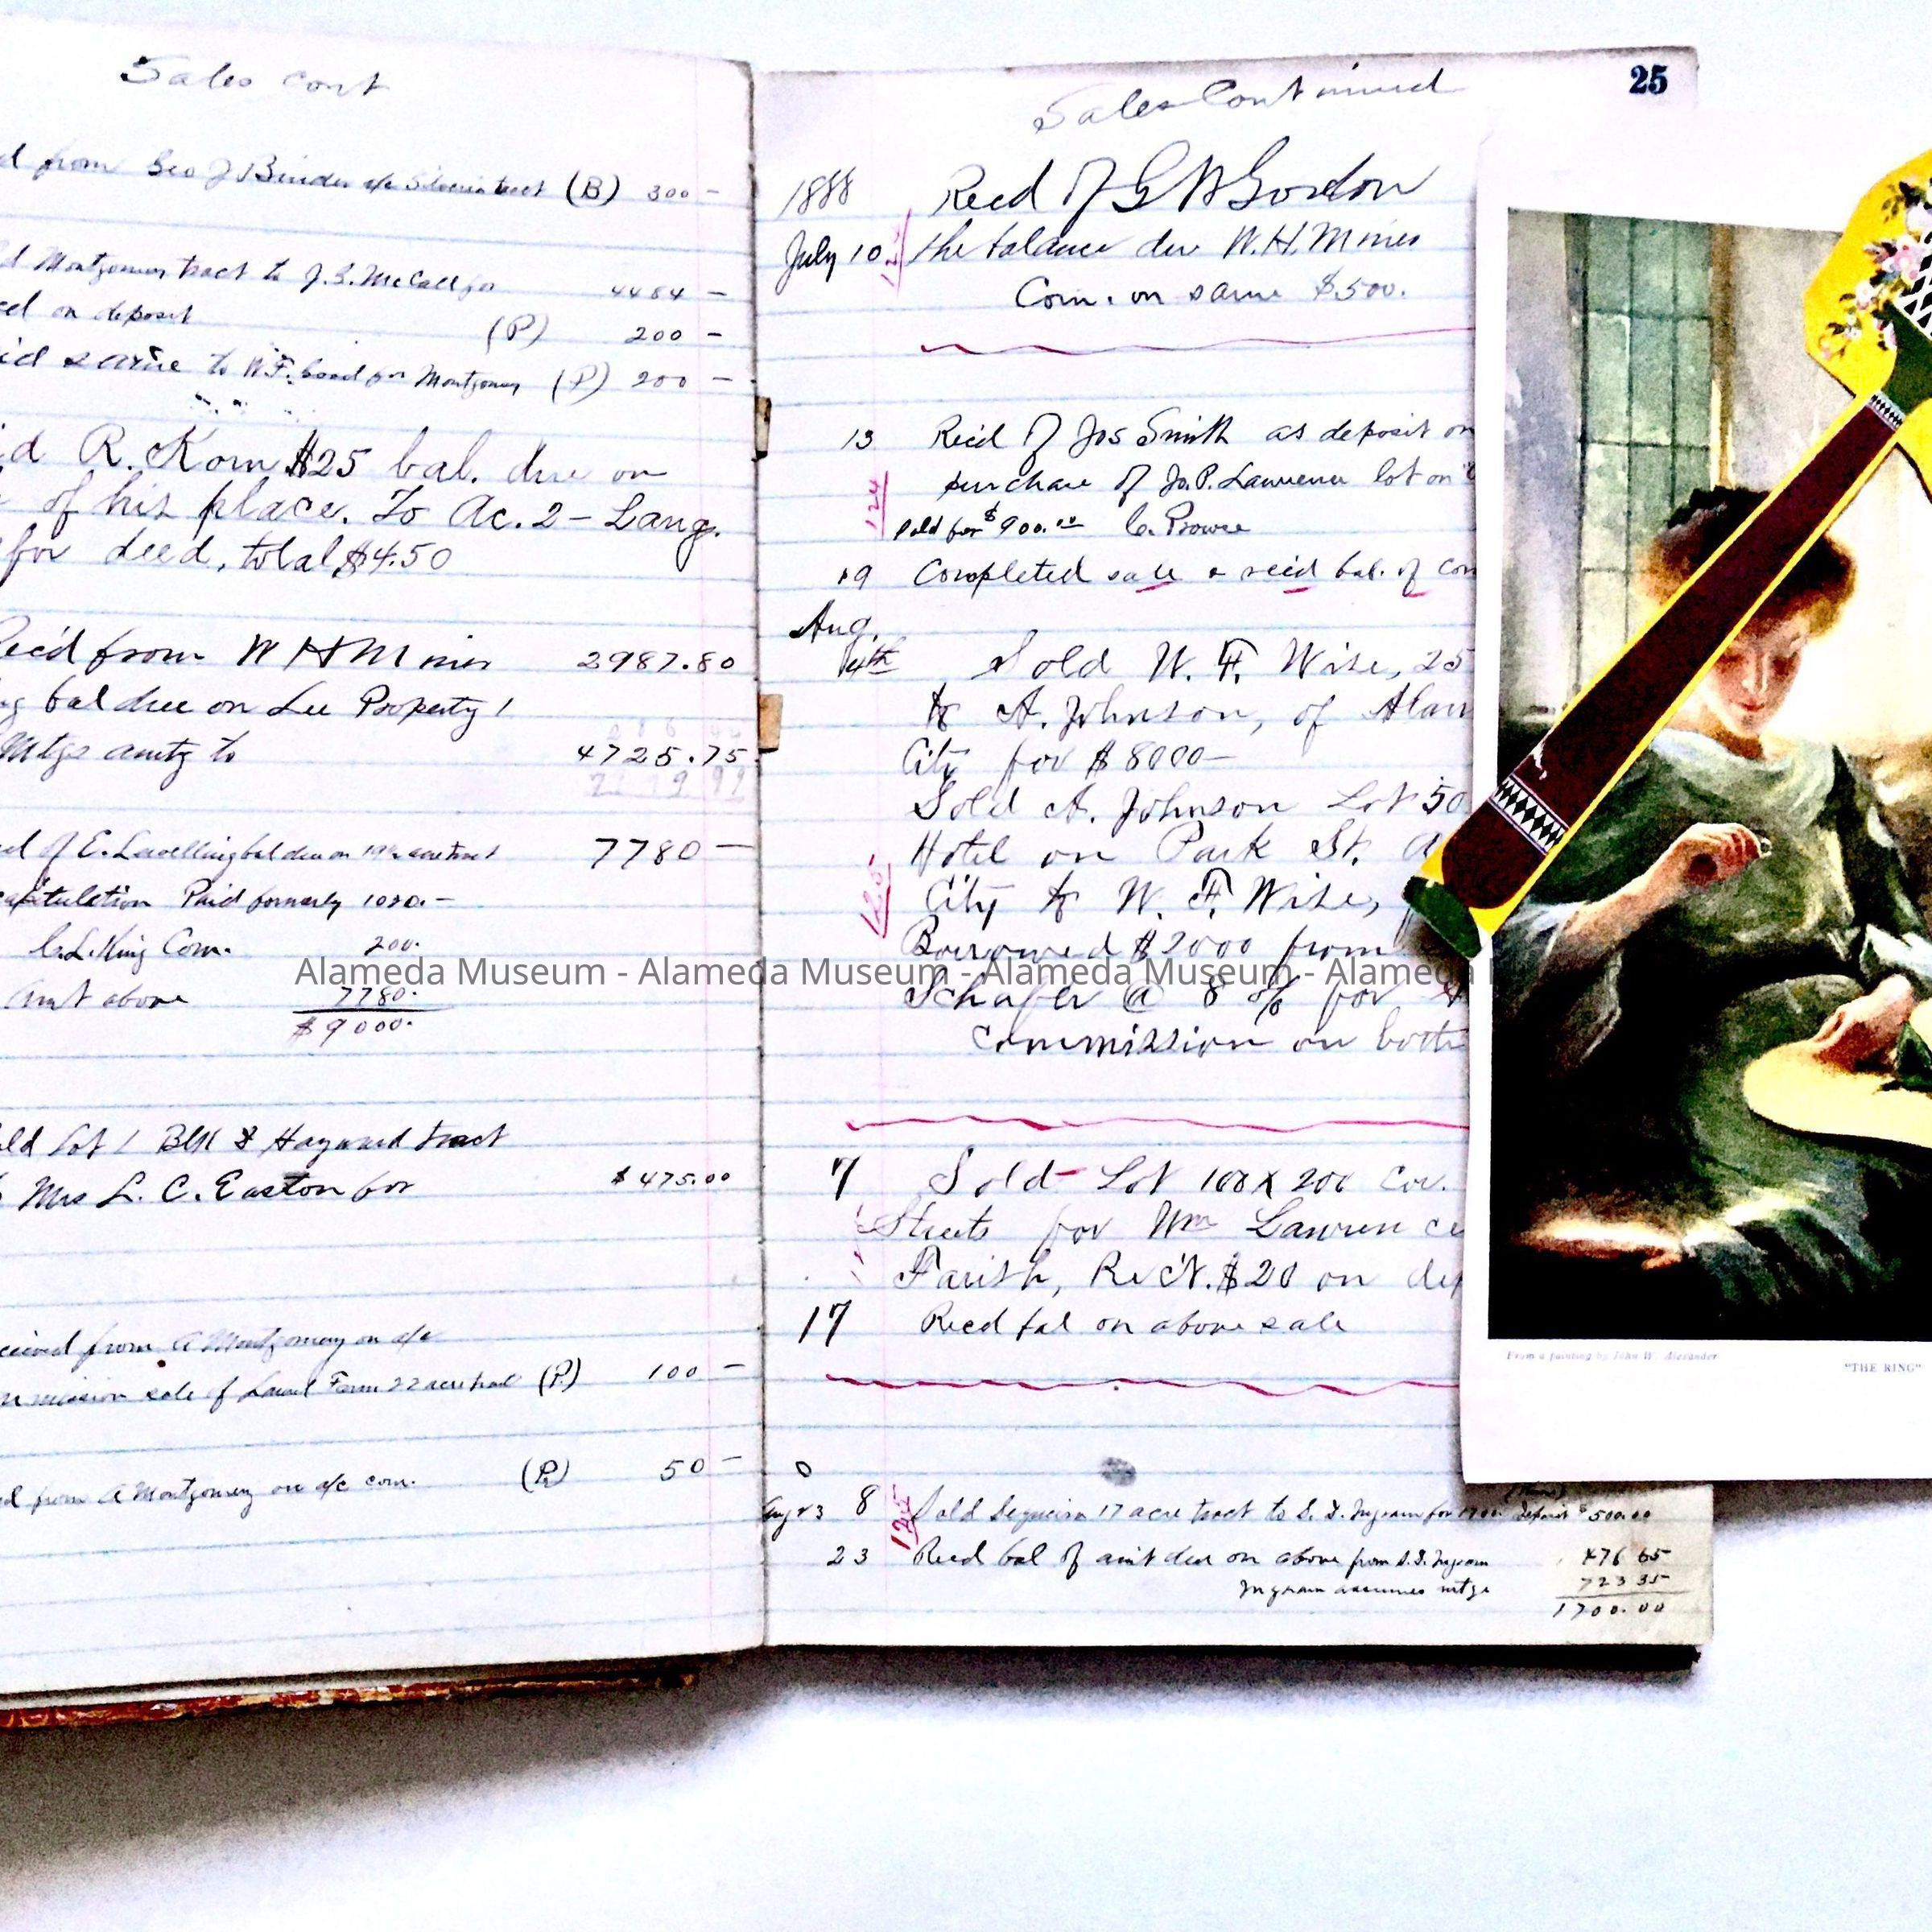 Sales cont
d from Geo J Binder a/c tract (B) 300 -
d Montgomery tract to J.S. McCall for 4484 -
on deposit (P) 200 -
id same to W.F. for Montgomery (P) 200 -
id R. Korn $25 bal. due on
of his place. To Ac. 2 - Lang.
for deed, total $4.50
Rec'd from W H Miner 2987.80
bal due on Lee Property
Mtge amtg to 4725.75
of E. Lewelling bal due on 7780 -
Paid formerly 1020. -
C.L. King Com. 200.
Amt above 7780.
$9000.
Lot 1 Blk Hayward tract
Mrs L. C. Easton for $475.00
ceived from A Montgomery on a/c
sale of Farm 22 acre (P.) 100 -
d from A Montgomery on a/c com. (P.) 50 -
Sales Continued
25
1888 Recd of G W Gordon
July 10 the balance due W.H. Miner
Com. on same $500.
13 Rec'd of Jos Smith as deposit on
124 purchase of Jo. P. Lawrence lot on
sold for $900.00 C. Prowse
19 Completed sale & recd bal. of com
Aug.
4th Sold W. F. Wise, 25
to A. Johnson, of Alam
City for $8000 -
Sold A. Johnson Lot 50
Hotel on Park St. a
City to W. F. Wise,
125
Borrowed $2000 from
Schafer @ 8 % for
commission on both
7 Sold - Lot 108 X 200 Cor.
Streets for Wm Lawrence
Farish, Rec't. $20 on dep
17 Recd bal on above sale
Aug 8 Sold Sequeira 17 acre tract to S. S. Ingram for 1700. Deposit $500.00
125
23 Recd bal of amt due on above from S. S. Ingram 476 65
Ingram assumes mtge 723 35
1700.00
From a painting by John W. Alexander
"THE RING"
Alameda Museum - Alameda Museum - Alameda Museum - Alameda